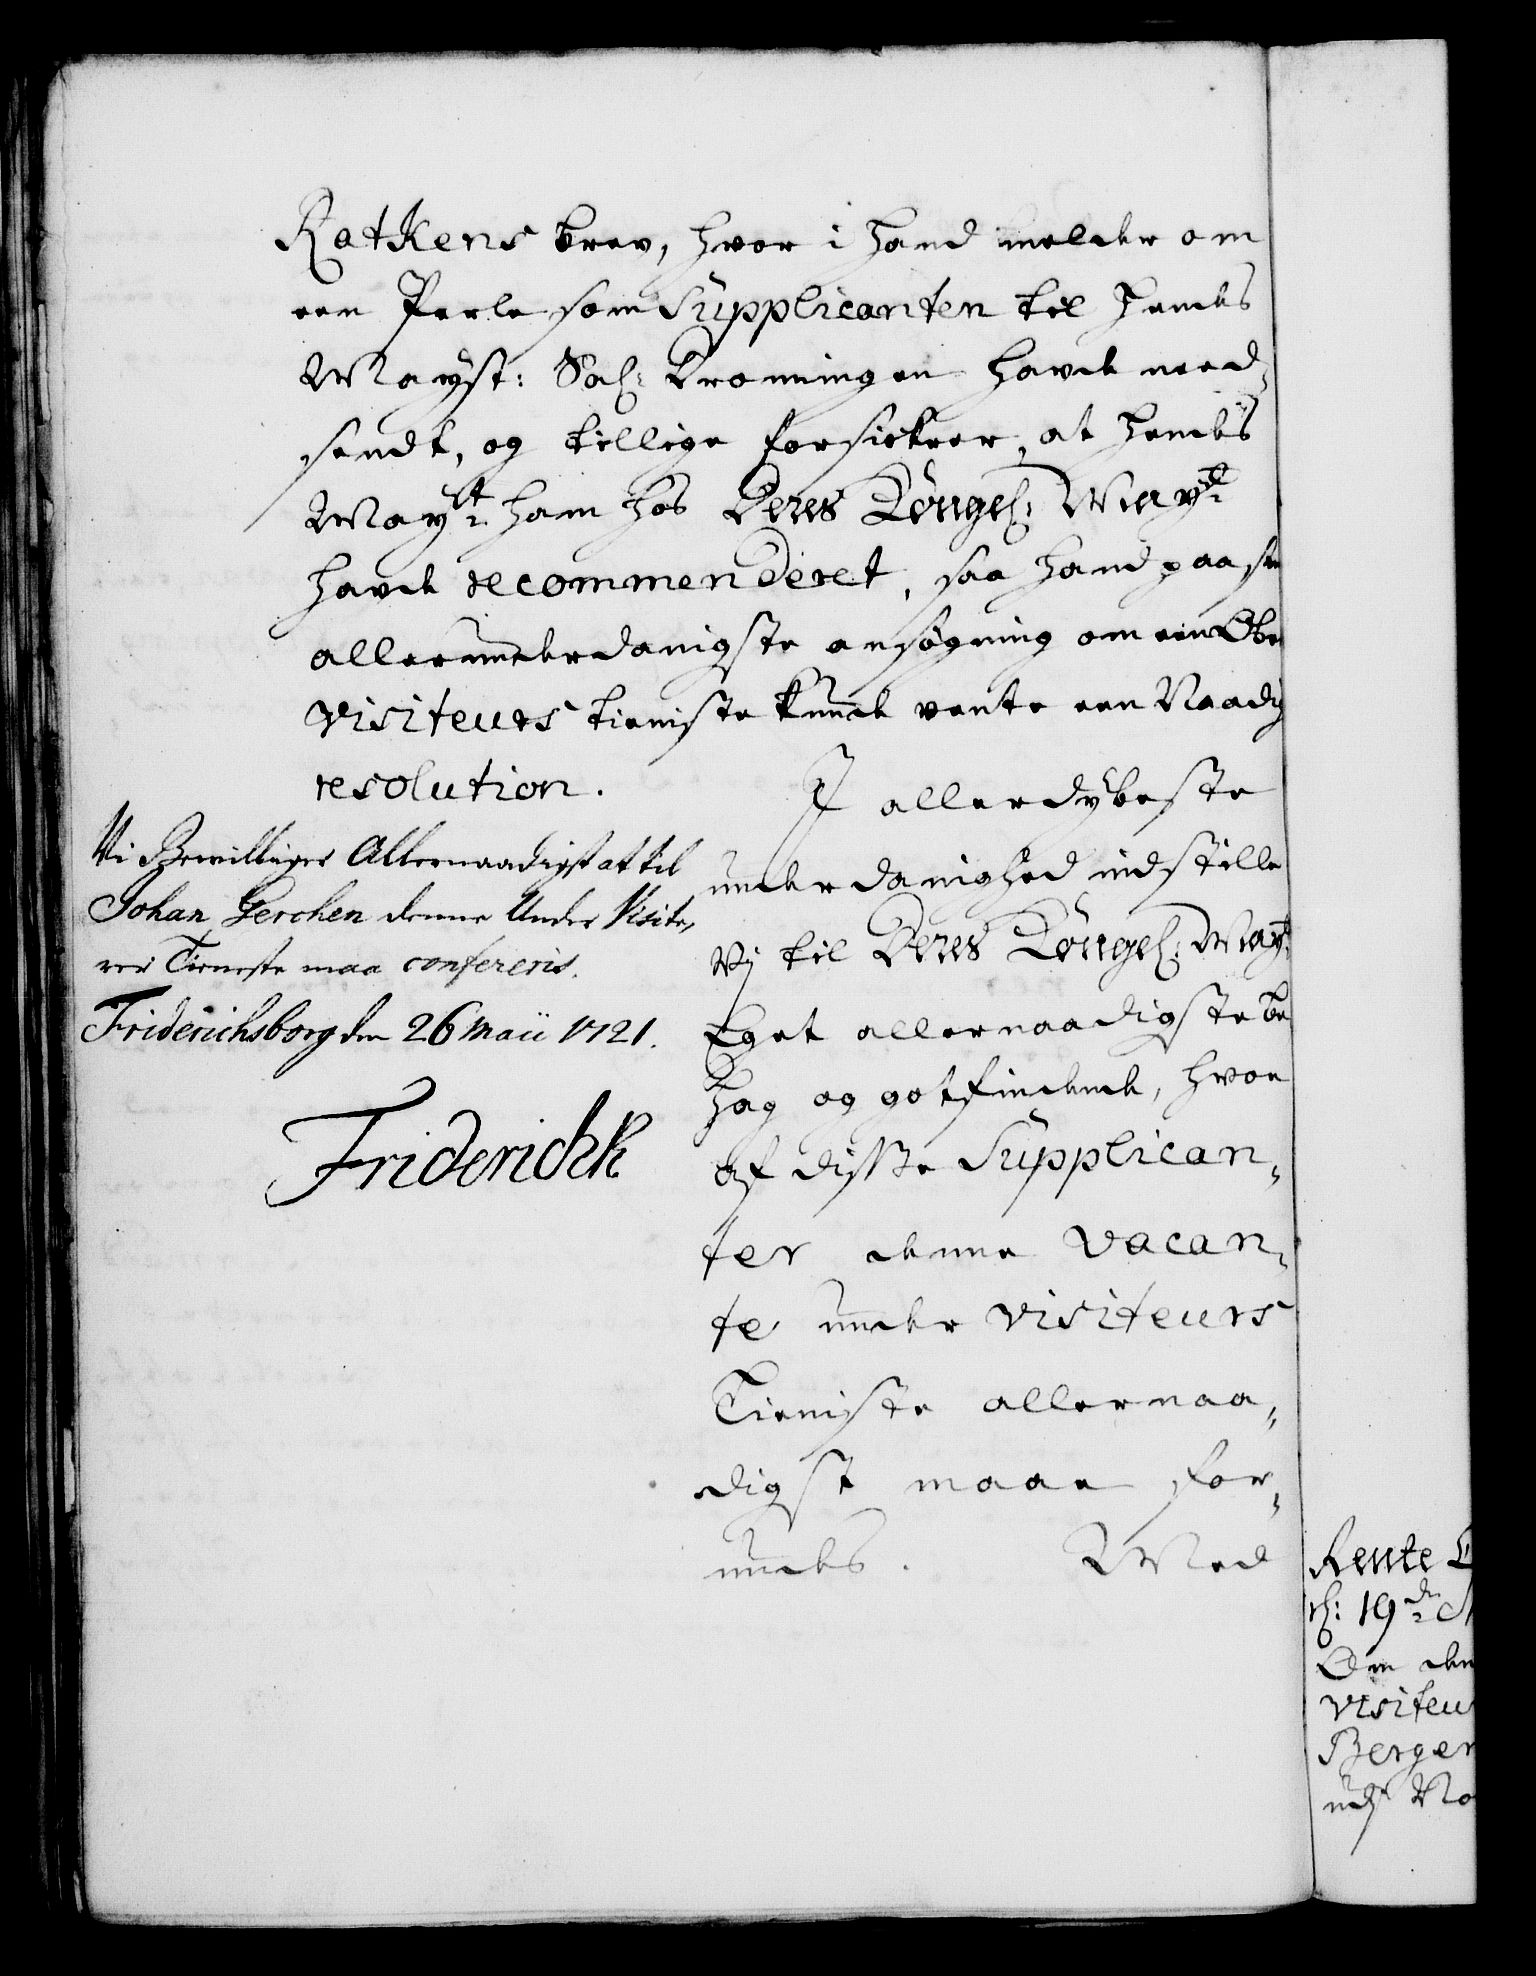 Ratkens brev, hvor i hand melder om
een Perle som Supplicanten til hendes
Mayst: Sal: Dronningen havde need-
sendt, og tillige forsickrer, at hendes
Mayt: ham hos Deres Kongel: Mayt:
havde recommenderet, saa hand paa sin
allerunderdanigste ansøgning om een Ober
Visiteurs tieniste kunde vente een Naadig
resolution.
I allerdybeste
underdanighed indstille
Vj til Deres Kongel: Mayt:
Eget allernaadigste be
hag og gotfindende, hvor
af disse Supplican-
ter denne vacan-
te under visiteurs
Tieniste allernaa-
digst maae for-
undes. Med
Vi Bewilliger Allernaadigst at til
Johan Gerchen denne Under Visite-
rer Tieneste maa confereris.
Friderichsborg den 26 Maii 1721.
Friderich R
Rente
19de
Om den
visiteu
Bergen
No